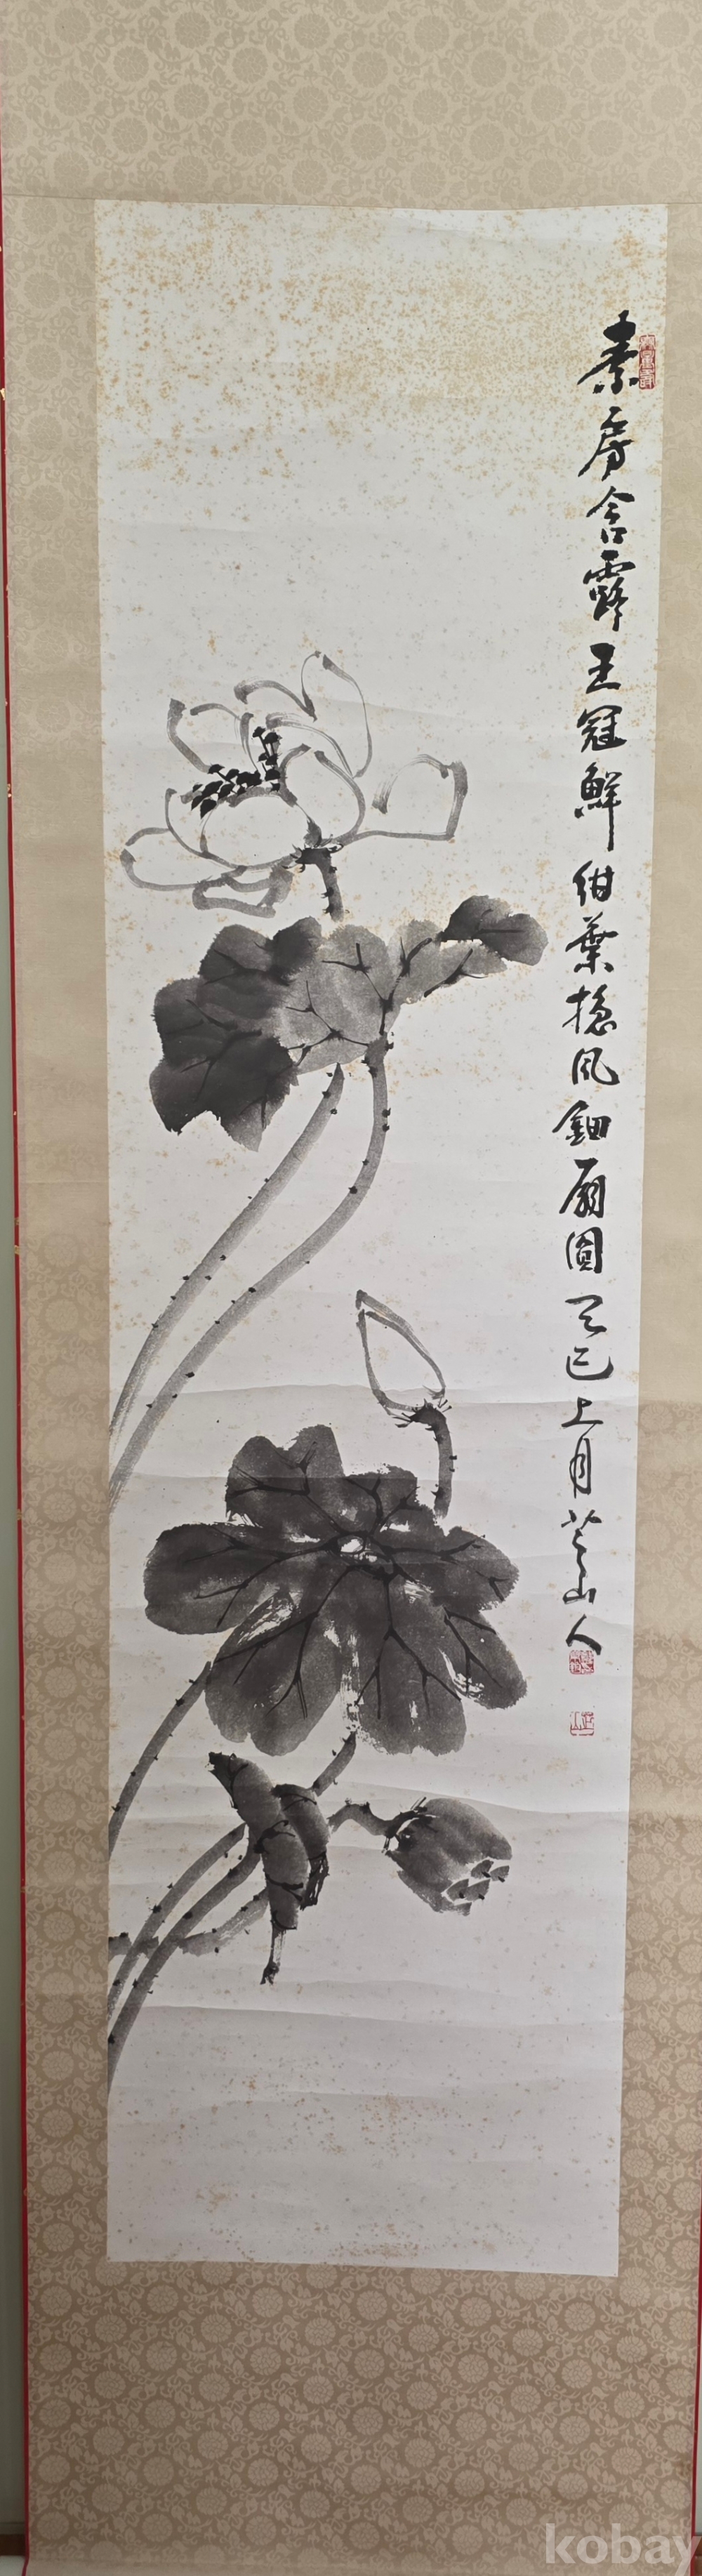 素房含露玉冠鮮紺葉搖風鈿扇圓乙巳上月芷山人
kobay